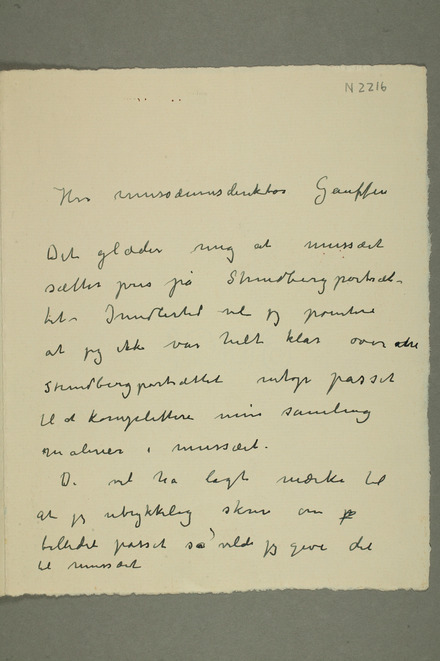 N 2216
Hrr museumsdirektør Gauffin
Det glæder mig at museet
sætter pris på Strindbergportræt-
tet – Imidlertid vil jeg pointere
at jeg ikke var helt klar over at
Strindbergportrættet netop passet
til å komplettere min samling
malerier i museet.
De vil ha lagt mærke til
at jeg utrykkelig skrev om
billedet passet så vilde jeg give det
til museet